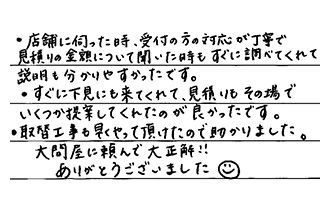 ・店舗に伺った時、受付の方の対応が丁寧で
見積りの金額について聞いた時もすぐに調べてくれて
説明も分かりやすかったです。
・すぐに下見にも来てくれて、見積りもその場で
いくつか提案してくれたのが良かったです。
・取替工事も早くやって頂けたので助かりました。
大問屋に頼んで大正解!!
ありがとうございました